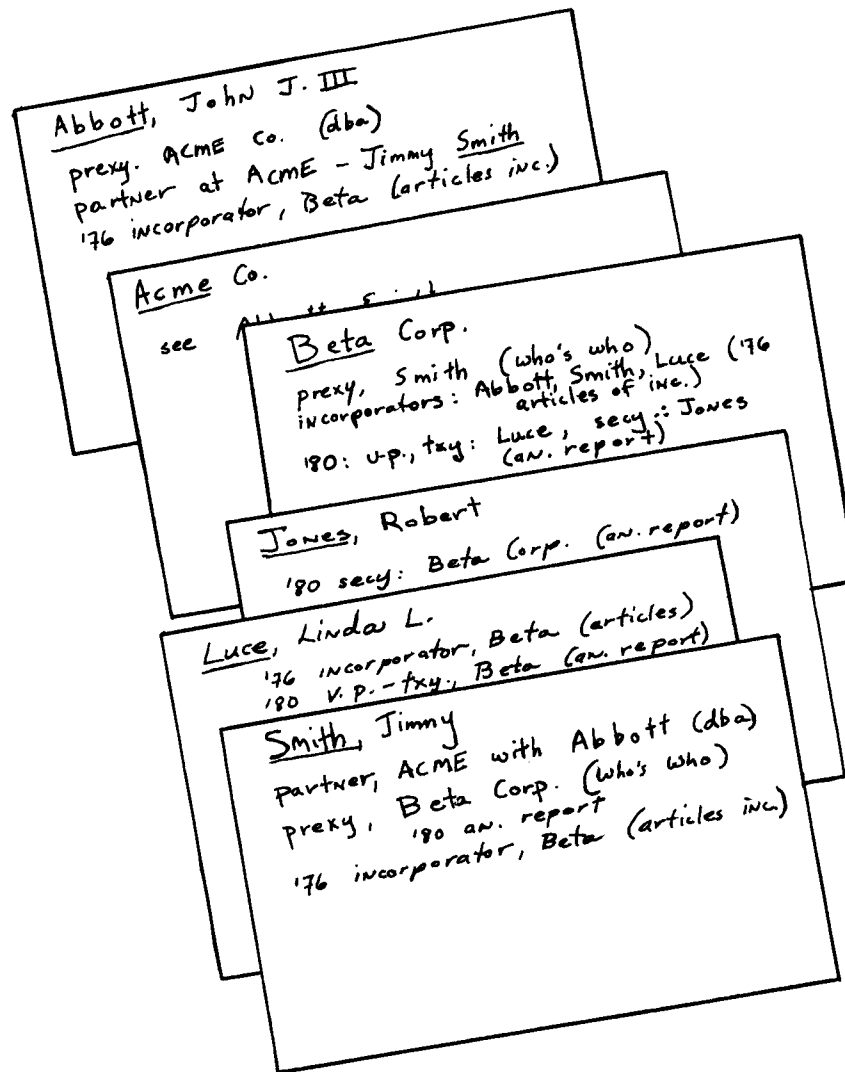 Abbott, John J. III
prexy. ACME Co. (dba)
partner at ACME - Jimmy Smith
'76 incorporator, Beta (articles inc.)
Acme Co.
see
Beta Corp.
prexy, Smith (who's who)
incorporators: Abbott, Smith, Luce ('76
articles of inc.)
'80: v.p., txy: Luce, secy: Jones
(an. report)
Jones, Robert
'80 secy: Beta Corp. (an. report)
Luce, Linda L.
'76 incorporator, Beta (articles)
'80 V.P. - txy., Beta (an. report)
Smith, Jimmy
partner, ACME with Abbott (dba)
prexy, Beta Corp. (who's who)
'80 an. report
'76 incorporator, Beta (articles inc.)